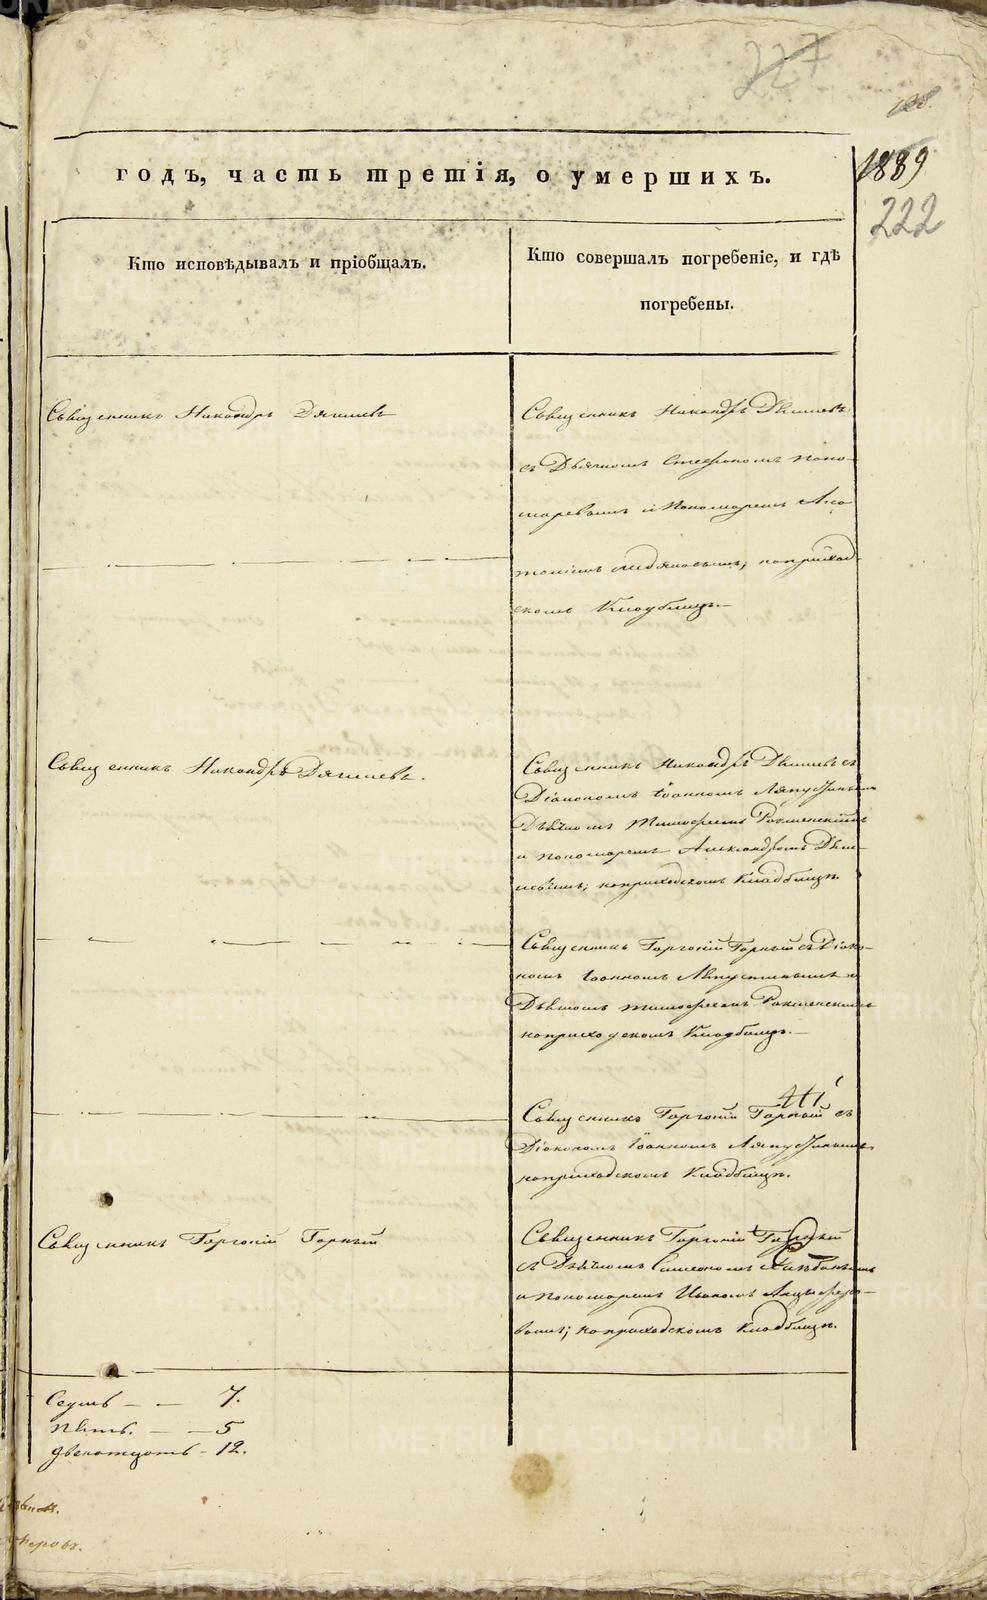 227
1889
222
годъ, часть третія, о умершихъ.
Кто исповѣдывалъ и пріобщалъ.
Кто совершалъ погребеніе, и гдѣ
погребены.
Священникъ Никандръ Дягилевъ
Священникъ Никандръ Дягилевъ
съ Дьячкомъ Стефаномъ Поно-
маревымъ и Пономаремъ Ана-
толіемъ ; на приход-
скомъ Кладбищѣ.
Священникъ Никандръ Дягилевъ.
Священникъ Никандръ Дягилевъ съ
Діакономъ Іоанномъ Ляпустинымъ
Дьячкомъ Тимофеемъ
и пономаремъ Александромъ Дяги-
левымъ; на приходскомъ Кладбищѣ.
Священникъ Горгоній Горный съ Діако-
номъ Іоанномъ Ляпустинымъ и
Дьячкомъ Тимофеемъ
на приходскомъ Кладбищѣ.
Священникъ Горгоній Горный съ
Діакономъ Іоанномъ Ляпустинымъ
на приходскомъ Кладбищѣ.
Священникъ Горгоній Горный
Священникъ Горгоній Горный
съ Дьячкомъ
и пономаремъ
; на приходскомъ Кладбищѣ.
Седмь — — 7.
Пять. — — 5
двенатцать - 12.